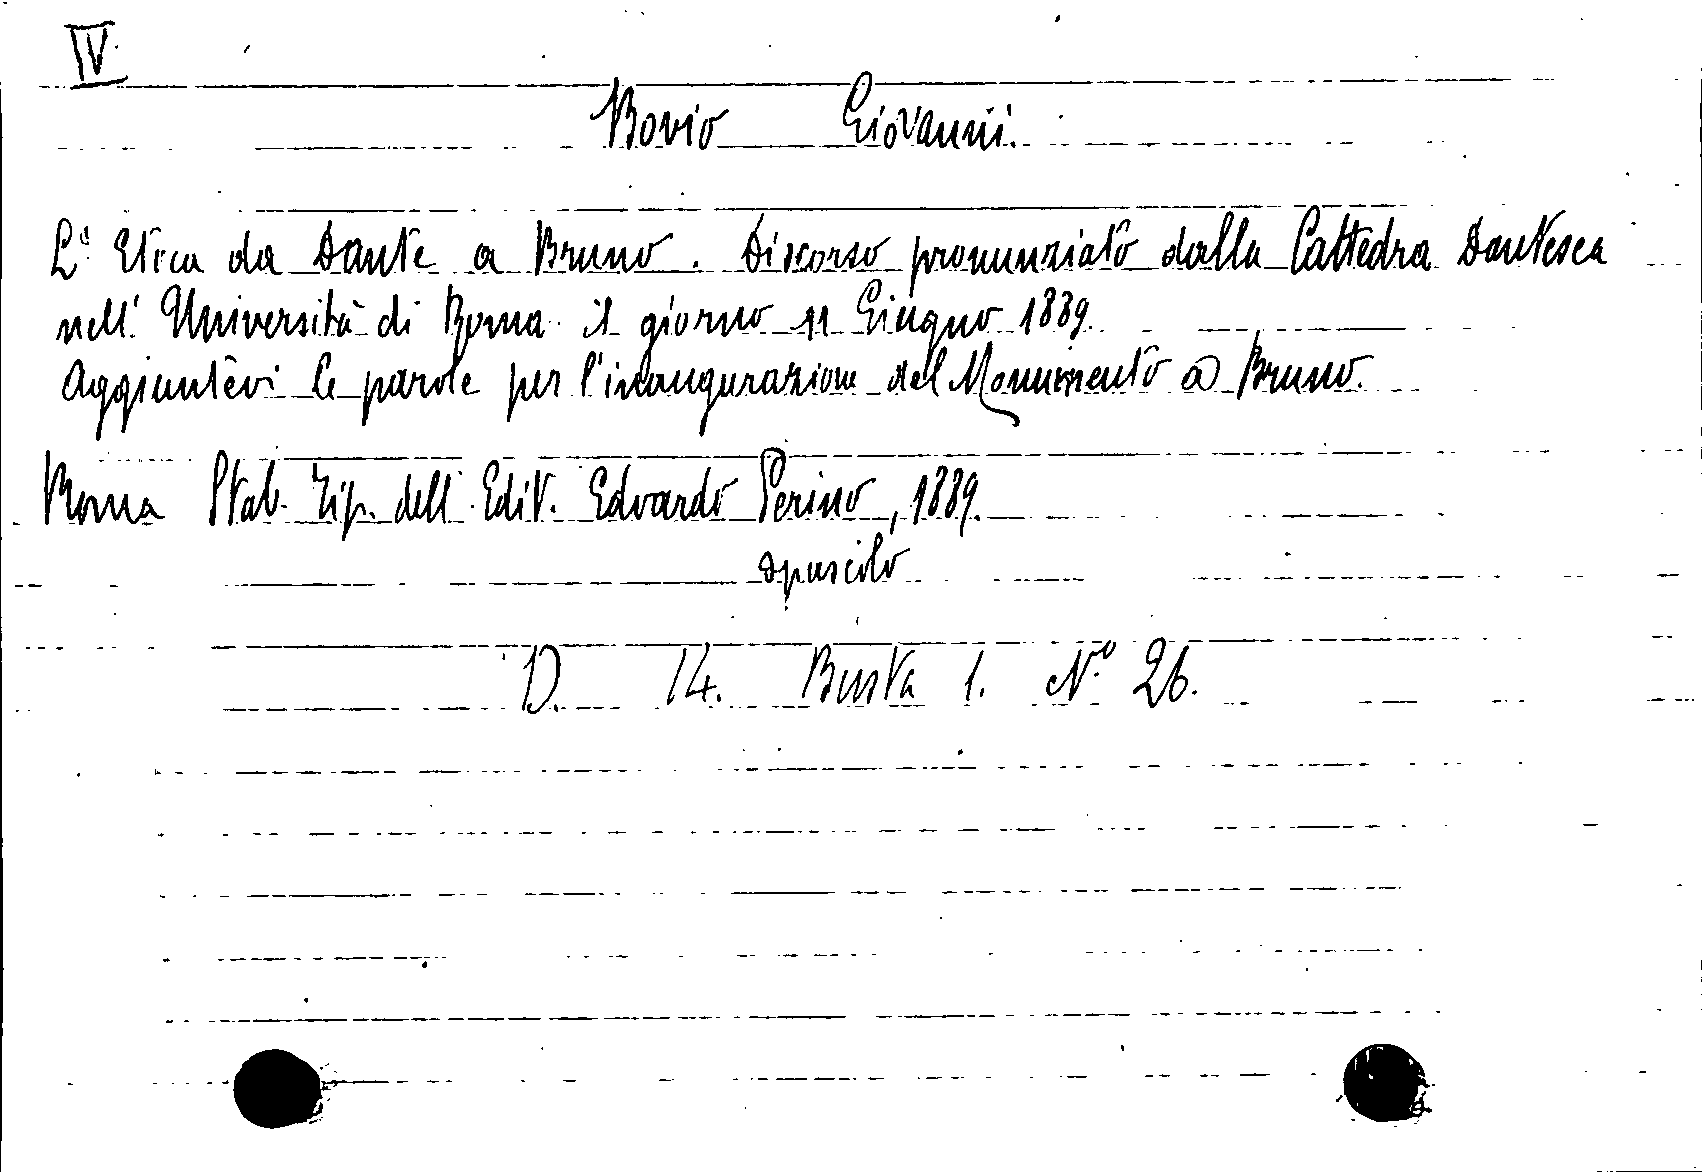 IV
Bovio Giovanni.
L'Etica da Dante a Bruno. Discorso pronunziato dalla Cattedra Dantesca
nell'Università di Roma il giorno 11 Giugno 1889
Aggiuntèvi le parole per l'inaugurazione del Monumento a Bruno.
Roma Stab. Tip. dell Edit. Edoardo Perino, 1889.
opuscolo
D. 14. Busta 1. N.º 26.